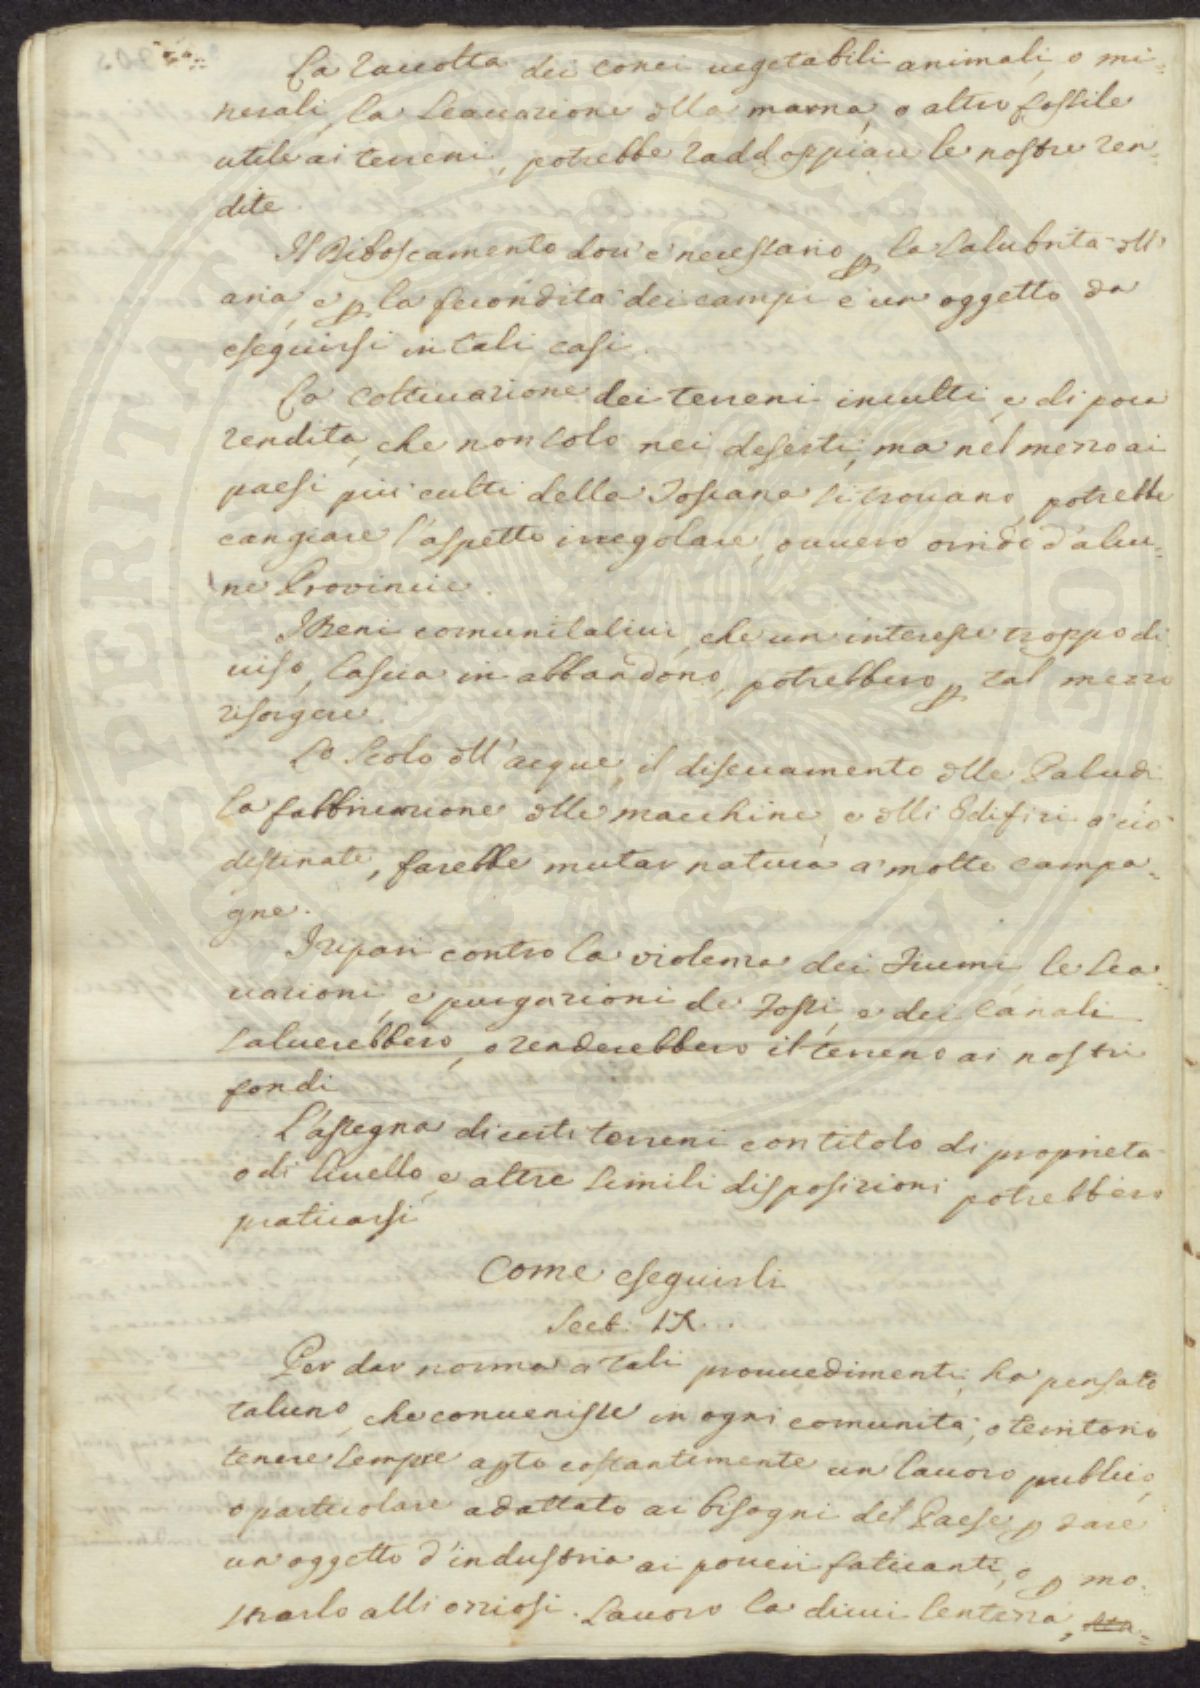 La raccolta dei conci vegetabili animali, o mi-
nerali, la scavazione dlla marna, o altro fossile
utile ai terreni, potrebbe raddoppiare le nostre ren-
dite.
Il Riboscamento dov'è necessario p la salubrità dll'
aria, e p la fecondità dei campi è un oggetto da
eseguirsi in tali casi.
La coltivazione dei terreni inculti, e di poca
rendita, che non solo nei deserti, ma nel mezzo ai
paesi più culti della Toscana si trovano, potrebbe
cangiare l'aspetto irregolare, ovvero orrido d'alcu-
ne Provincie.
I Beni comunitativi, che un interesse troppo di
viso, lascia in abbandono, potrebbero p tal mezzo
risorgere.
Lo Scolo dll'acque, il diseccamento dlle Paludi
la fabbricazione dlle macchine, e dlli Edifizi a ciò
destinate, farebbe mutar natura a molte campa-
gne.
I ripari contro la violenza dei Fiumi, le sca-
vazioni, e purgazioni de Fossi, e dei Canali
salverebbero, o renderebbero il terreno ai nostri
fondi
L'assegna di certi terreni con titolo di proprietà
o di livello, e altre simili disposizioni potrebbero
praticarsi
Come eseguirli
Sect. IX..
Per dar norma a tali provvedimenti, ha pensato
taluno, che convenisse in ogni comunità, o territorio
tenere sempre apto costantemente un lavoro publico,
o particolare adattato ai bisogni del Paese, p dare
un oggetto d'industria ai poveri faticanti, o p mo-
strarlo alli oziosi. Lavoro la di cui lentezza,